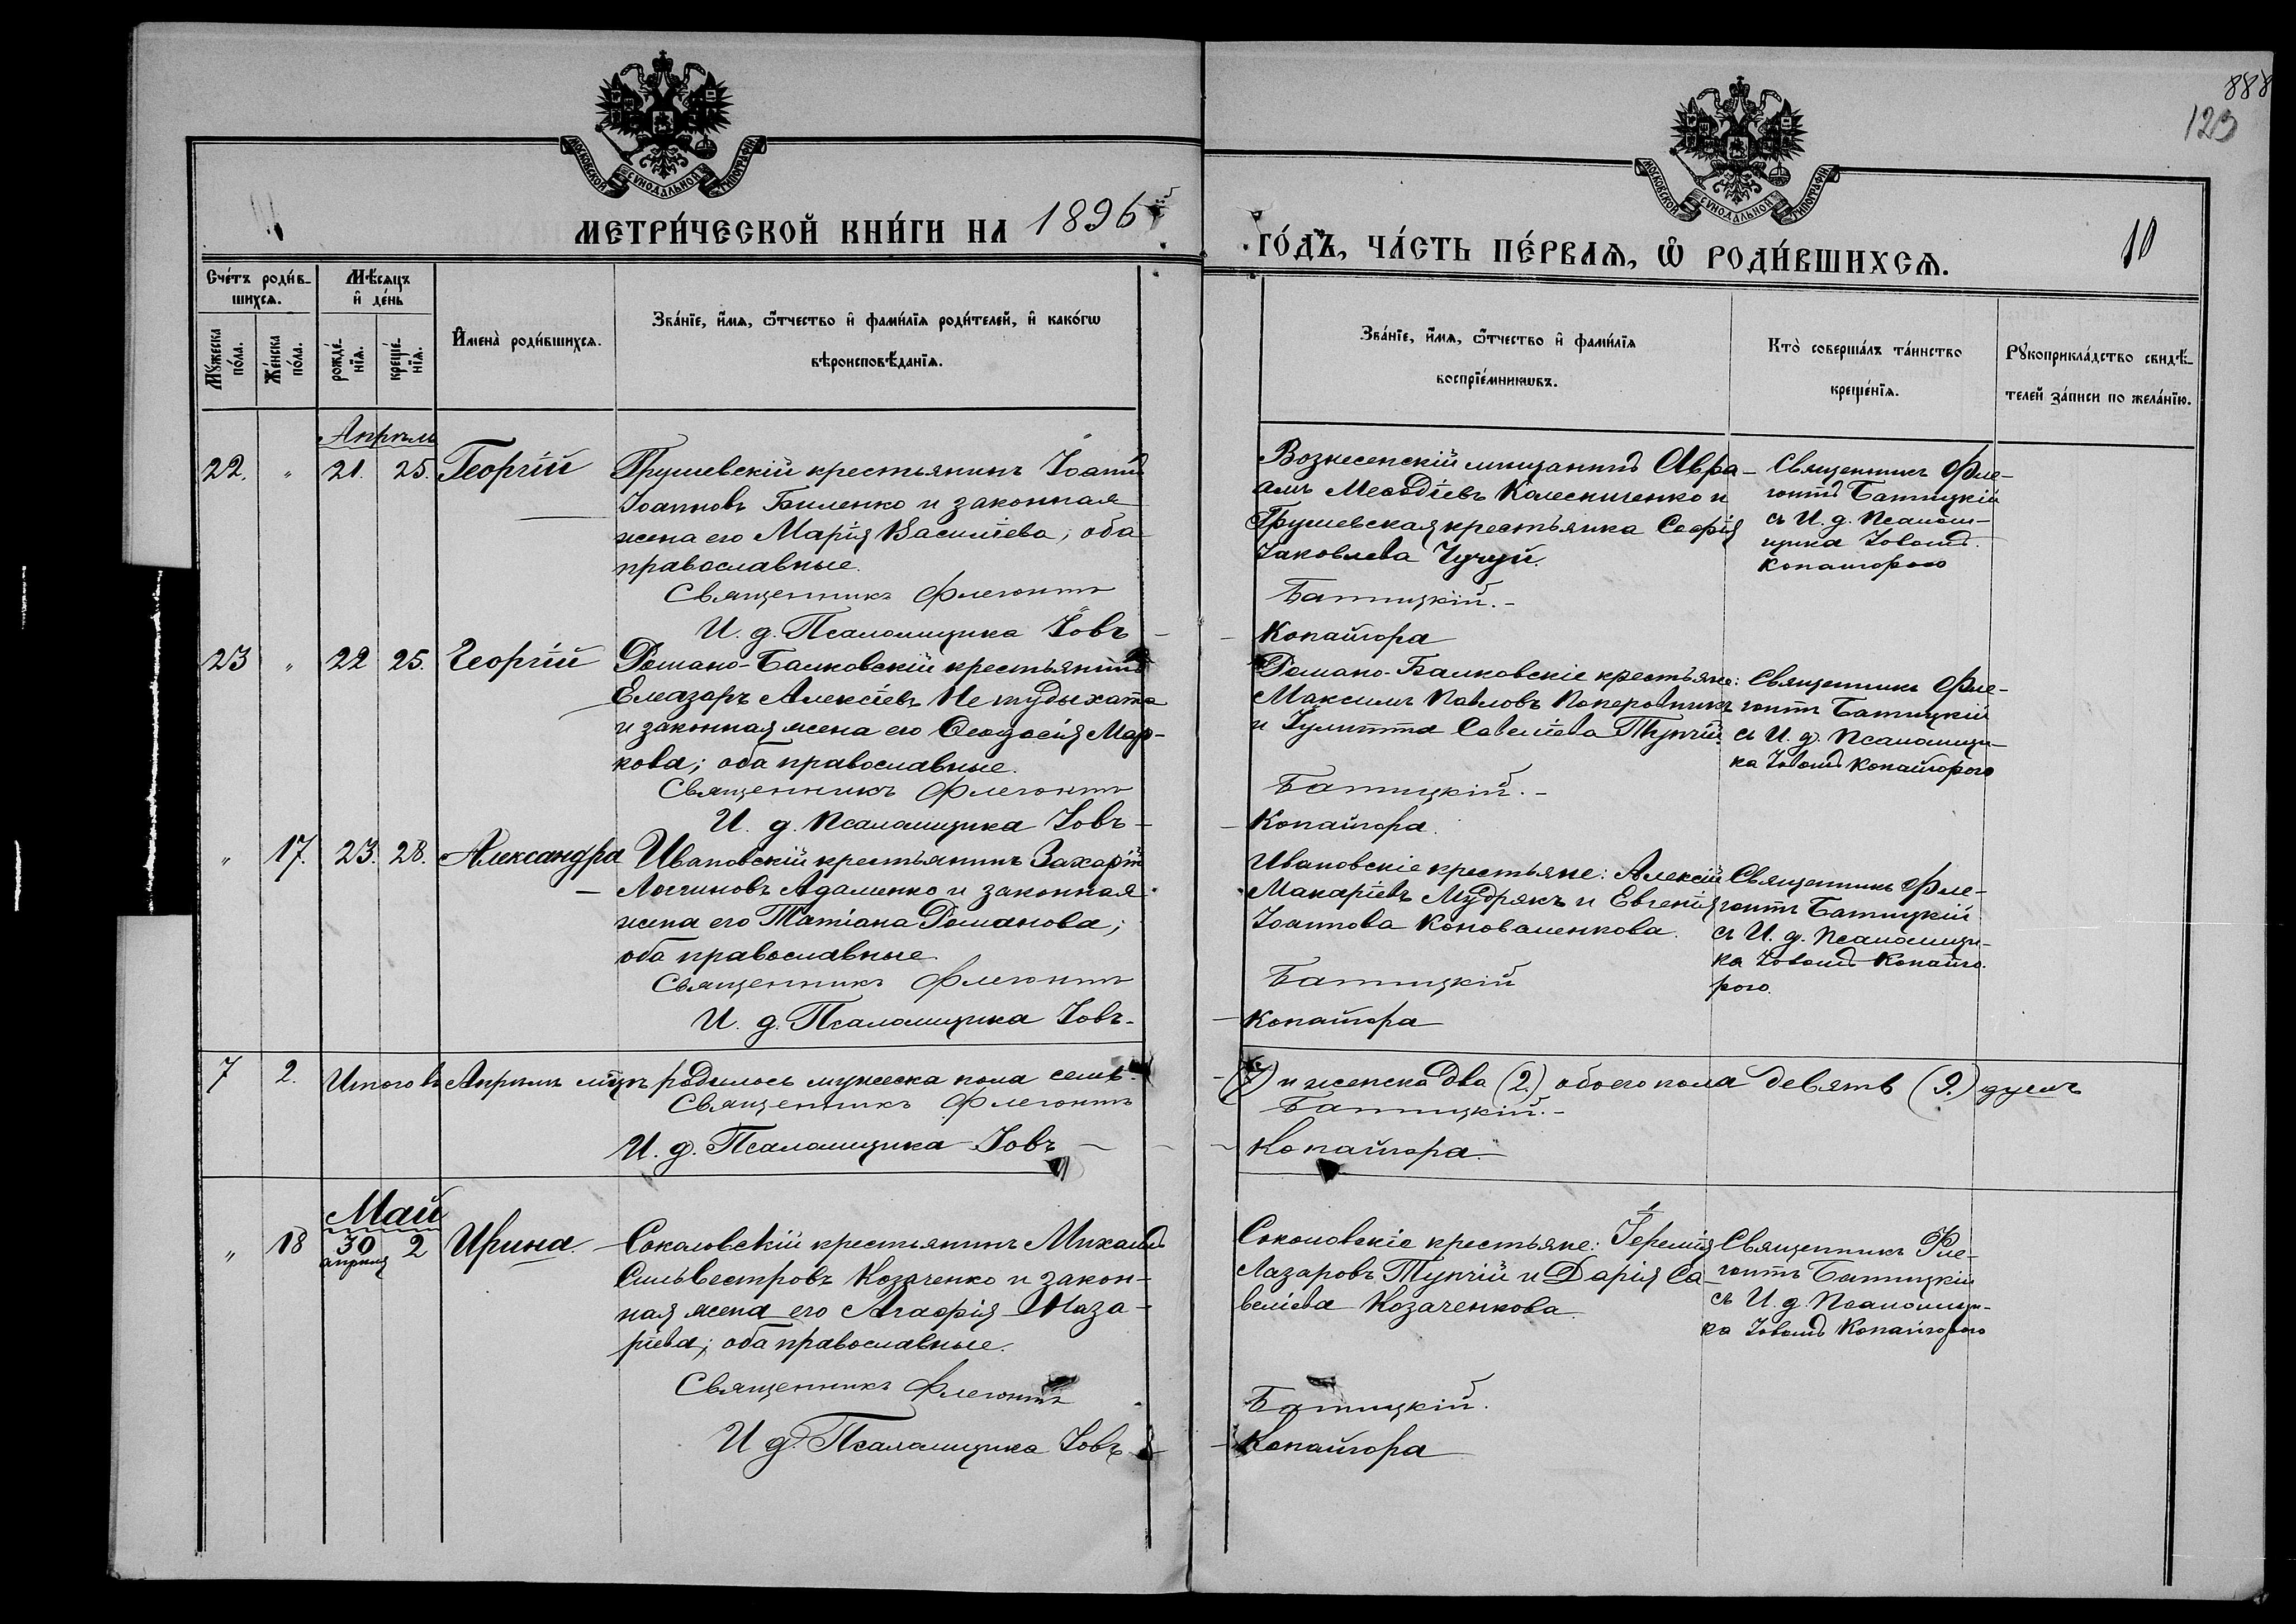 888
123
МОСКОВСКОЙ СѴНОДАЛЬНОЙ ТИПОГРАФІИ
МОСКОВСКОЙ СѴНОДАЛЬНОЙ ТИПОГРАФІИ
МЕТРИ́ЧЕСКОЙ КНИ́ГИ НА 1896й
ГО́ДЪ, ЧА́СТЬ ПЕ́РВАѦ, Ѡ҆ РОДИ́ВШИХСѦ.
10
Сче́тъ роди́в-
шихсѧ.
Мꙋ́жеска по́ла.
Же́нска по́ла.
Мѣ́сѧцъ
и҆ де́нь
рожде́нїѧ.
креще́нїѧ.
И҆мена̀ роди́вшихсѧ.
Зва́нїе, и҆́мѧ, ѻ҆́тчество и҆ фами́лїѧ роди́телей, и҆ како́гѡ
вѣроисповѣ́данїѧ.
Зва́нїе, и҆́мѧ, ѻ҆́тчество и҆ фами́лїѧ
воспрїе́мникѡвъ.
Кто̀ соверша́лъ та́инство
креще́нїѧ.
Рꙋкоприкла́дство свидѣ́-
телей за́писи по жела́нїю.
Апрѣль
22. " 21. 25. Георгій
Грушевскій крестьянинъ Іоаннъ
Іоанновъ Биленко и законная
жена его Марія Василіева; оба
православные.
Священникъ Флегонтъ
И. д. Псаломщика Іовъ -
Вознесенскій мищанинъ Авра-
амъ Меѳодіевъ Колесниченко и
Грушевская крестьянка Софія
Іаковлева Чучуй.
Батицкій. -
- Копайгора
Священникъ Фле-
гонтъ Батицкій
съ И. д. Псалом-
щика Іовомъ
Копайгорою
23 " 22 25. Георгій
Романо-Балковскій крестьянинъ
Елеазаръ Алексіевъ Нетудыхата
и законная жена его Ѳеодосія Мар-
кова; оба православные.
Священникъ Флегонтъ
И. д. Псаломщика Іовъ -
Романо-Балковскіе крестьяне:
Максимъ Павловъ
и Іулитта Савелієва Тупчій.
Батицкій. -
- Копайгора.
Священникъ Фле-
гонтъ Батицкій
съ И. д. Псаломщи-
ка Іовомъ Копайгорою
" 17. 23. 28. Александра
Ивановскій крестьянинъ Захарій
Логиновъ Адаменко и законная
жена его Татіана Романова;
оба православные
Священникъ Флегонтъ
И. д. Псаломщика Іовъ -
Ивановскіе крестьяне: Алексій
Макаріевъ Мудрякъ и Евгенія
Іоаннова Коноваленкова.
Батицкій
- Копайгора
Священникъ Фле-
гонтъ Батицкій
съ И. д. Псаломщи-
ка Іовомъ Копайго-
рою.
7 2. Итого въ Апрѣлѣ мцѣ родилось мужеска пола семь
- (7) и женска два (2.) обоего пола девять (9.) душъ
Священникъ Флегонтъ
Батицкій. -
И. д. Псаломщика Іовъ -
- Копайгора.
Май
" 18 30 апрѣля 2 Ирина.
Соколовскій крестьянинъ Михаилъ
Сильвестровъ Козаченко и закон-
ная жена его Агафія Наза-
ріева; оба православные.
Священникъ Флегонтъ
И. д. Псаломщика Іовъ -
Соколовскіе крестьяне: Іеремія
Лазаровъ Тупчій и Дарія Са-
веліева Козаченкова.
Батицкій.
- Копайгора
Священникъ Фле-
гонтъ Батицкій
съ И. д. Псаломщи-
ка Іовомъ Копайгорою